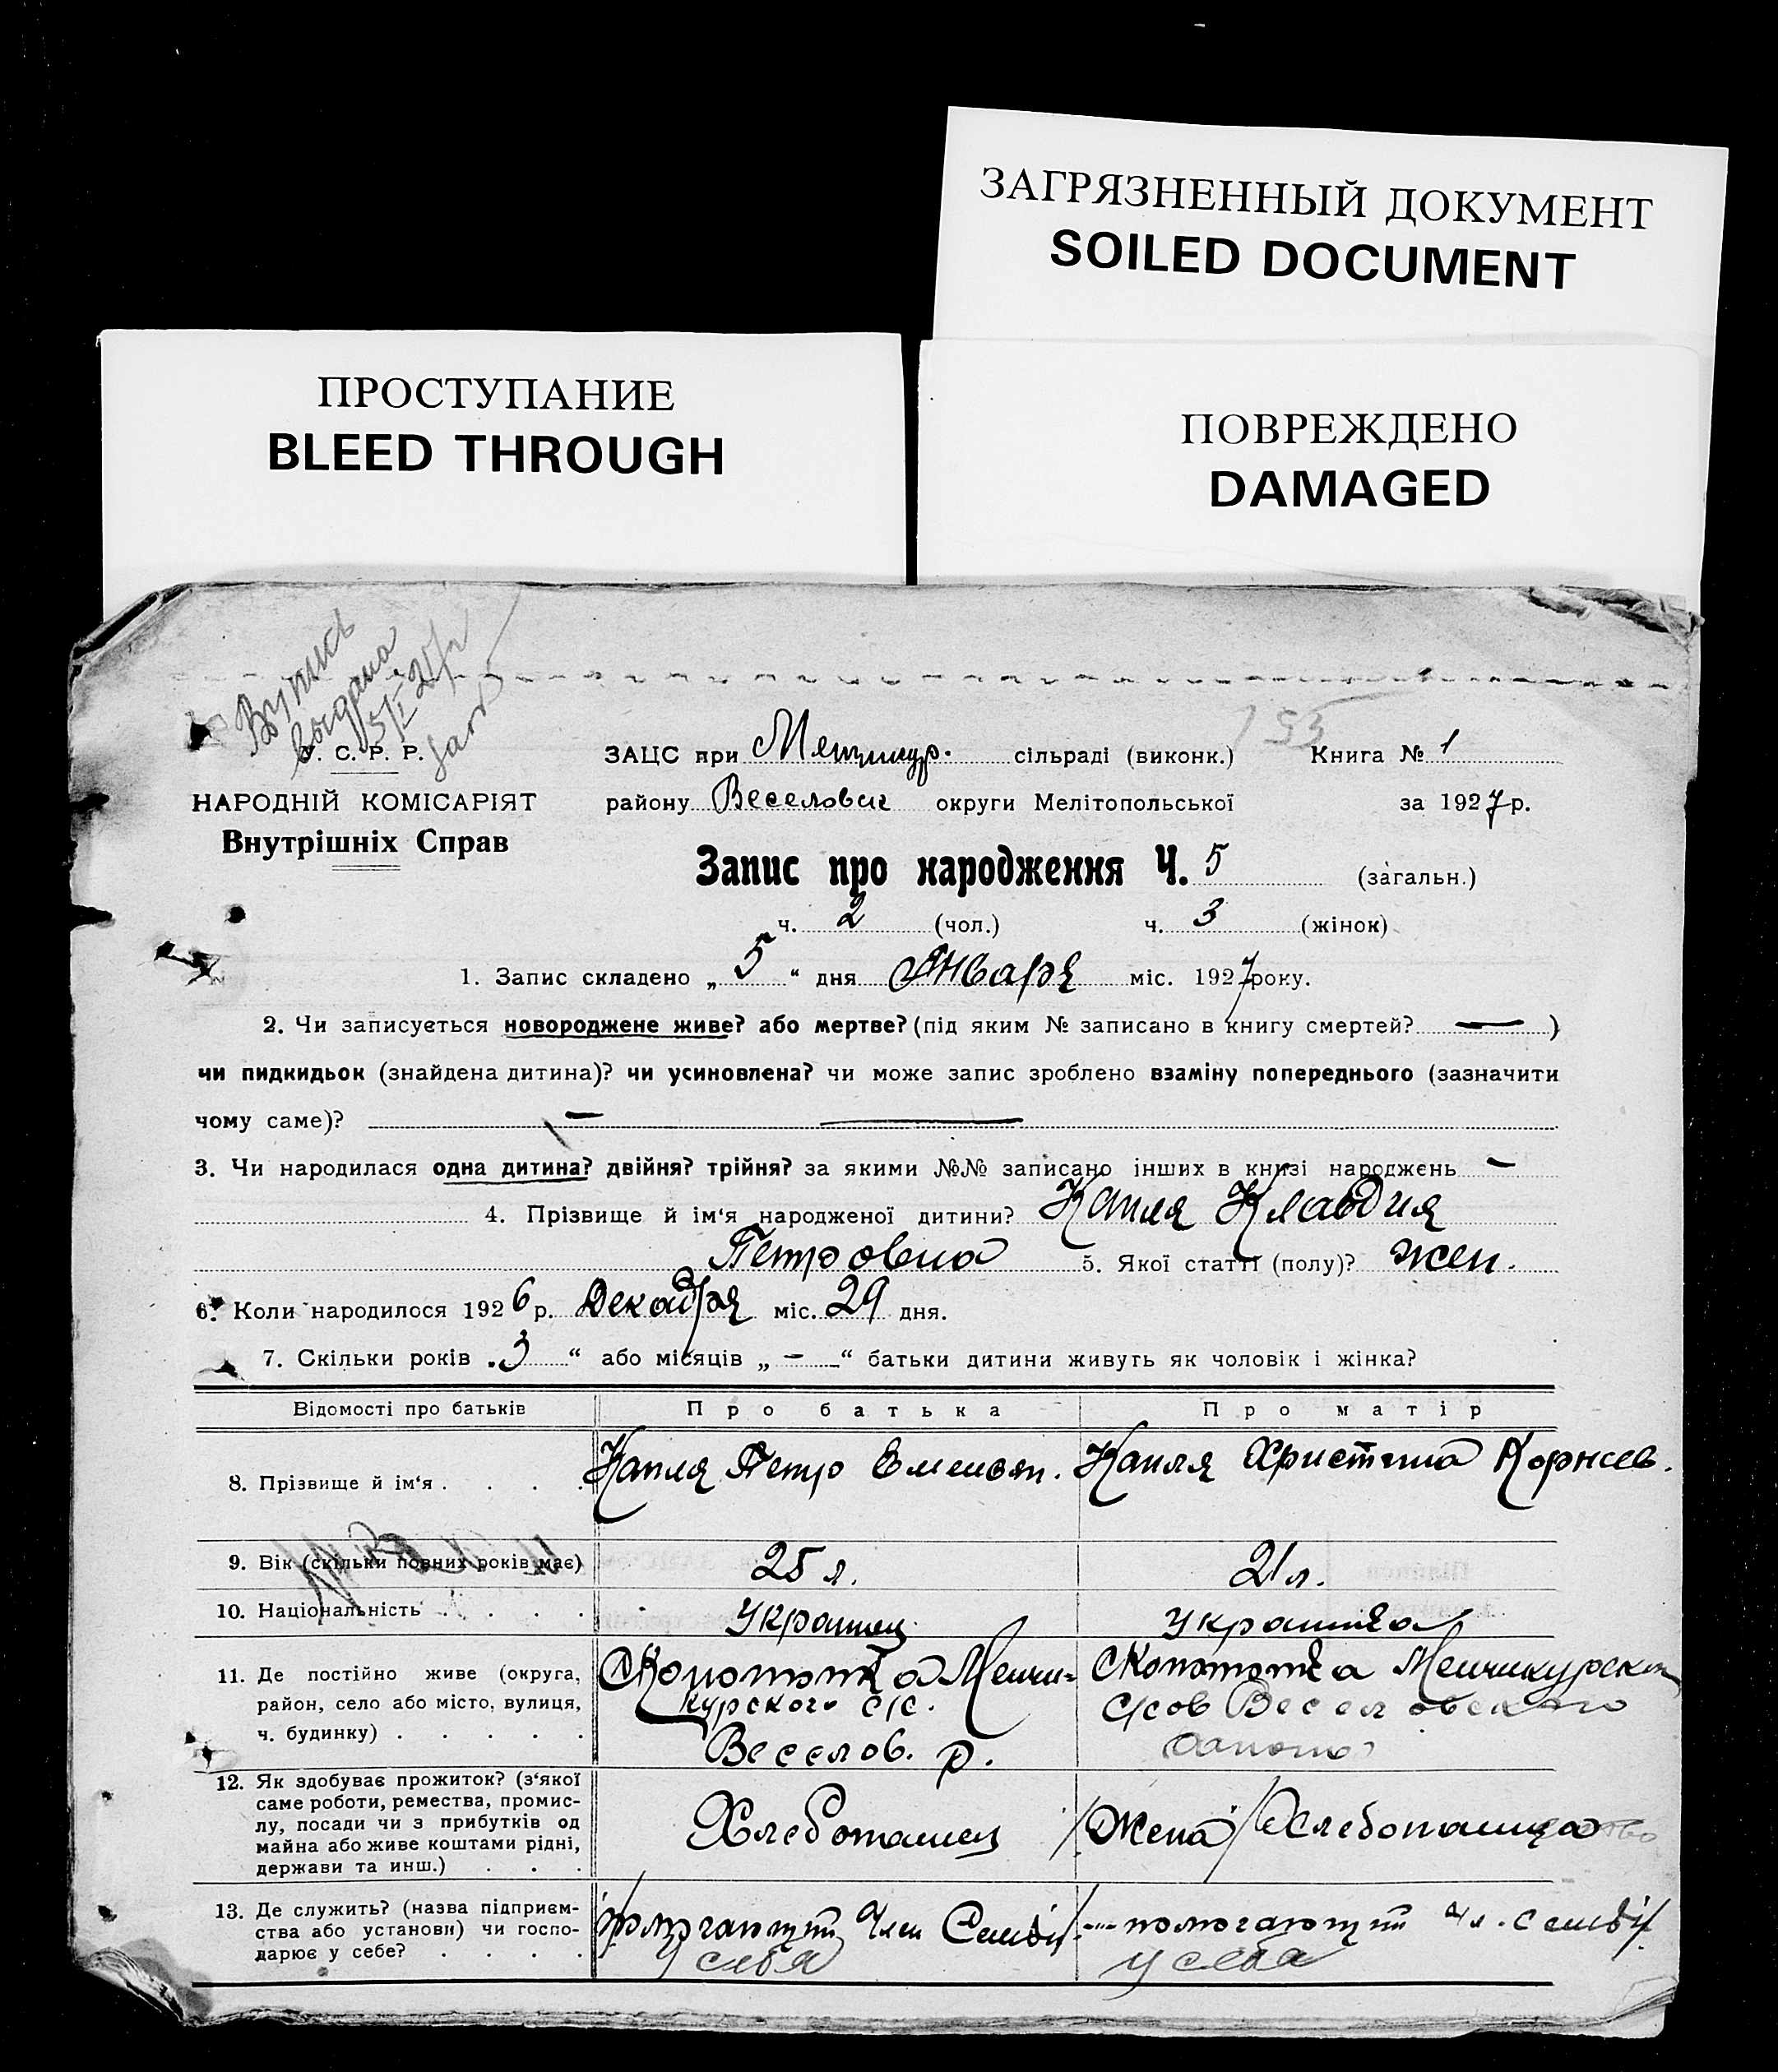 ЗАГРЯЗНЕННЫЙ ДОКУМЕНТ
SOILED DOCUMENT
ПРОСТУПАНИЕ
BLEED THROUGH
ПОВРЕЖДЕНО
DAMAGED
Выпись
выдана
У. С. Р. Р.
НАРОДНІЙ КОМІСАРІЯТ
Внутрішніх Справ
ЗАЦС при Менчикур. сільраді (виконк.) Книга № 1
району Веселовск округи Мелітопольської за 1927 р.
Запис про народження Ч. 5 (загальн.)
ч. 2 (чол.) ч. 3 (жінок)
1. Запис складено „5“ дня Января міс. 1927 року.
2. Чи записується новороджене живе? або мертве? (під яким № записано в книгу смертей? — )
чи пидкидьок (знайдена дитина)? чи усиновлена? чи може запис зроблено взаміну попереднього (зазначити
чому саме)? — —
3. Чи народилася одна дитина? двійня? трійня? за якими №№ записано інших в книзі народжень —
4. Прізвище й ім‘я народженої дитини? Капля Клавдия
Петровна 5. Якої статті (полу)? жен.
6. Коли народилося 1926 р. Декабря міс. 29 дня.
7. Скільки років „3“ або місяців „—“ батьки дитини живуть як чоловік і жінка?
Відомості про батьків Про батька Про матір
8. Прізвище й ім‘я . . . . Капля Петр Емельян. Капля Христина Корнеев.
9. Вік (скільки повних років має) 25 л. 21 л.
10. Національність . . . . Украинец Украинка
11. Де постійно живе (округа,
район, село або місто, вулиця,
ч. будинку) . . . . .
Менчи-
курского с/с.
Веселов. р.
Менчикурского
с/сов Веселовского
12. Як здобуває прожиток? (з‘якої
саме роботи, ремества, промис-
лу, посади чи з прибутків од
майна або живе коштами рідні,
держави та инш.) . . .
Хлебопашец
Жена Хлебопашца
13. Де служить? (назва підприєм-
ства або установи) чи госпо-
дарює у себе? . . . .
помогающий Член Семьи
у себя
помогающий чл. семьи
у себя